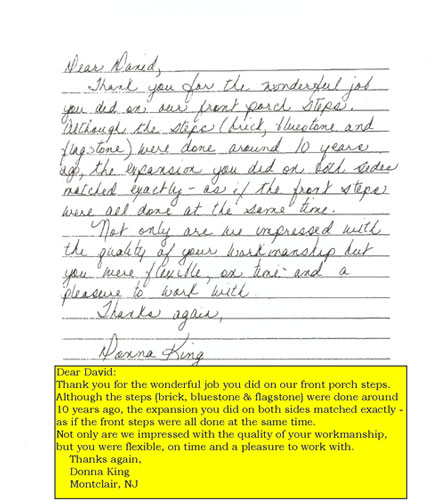 Dear David,
Thank you for the wonderful job
you did on our front porch steps.
Although the steps (brick, bluestone and
flagstone) were done around 10 years
ago, the expansion you did on both sides
matched exactly - as if the front steps
were all done at the same time.
Not only are we impressed with
the quality of your workmanship but
you were flexible, on time and a
pleasure to work with.
Thanks again,
Donna King
Dear David:
Thank you for the wonderful job you did on our front porch steps.
Although the steps (brick, bluestone & flagstone) were done around
10 years ago, the expansion you did on both sides matched exactly -
as if the front steps were all done at the same time.
Not only are we impressed with the quality of your workmanship,
but you were flexible, on time and a pleasure to work with.
Thanks again,
Donna King
Montclair, NJ